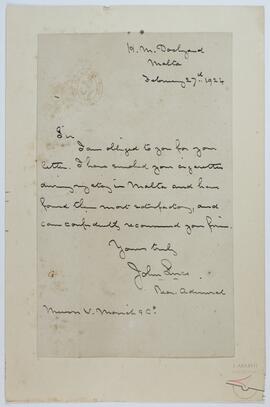 H. M. Dockyard
Malta
February 27th 1924
Sir
I am obliged to you for your
letter. I have smoked your cigarettes
during my stay in Malta and have
found them most satisfactory, and
can confidently recommend your firm.
Yours truly
John Luce
Rear Admiral
Messrs V. Marich & Co